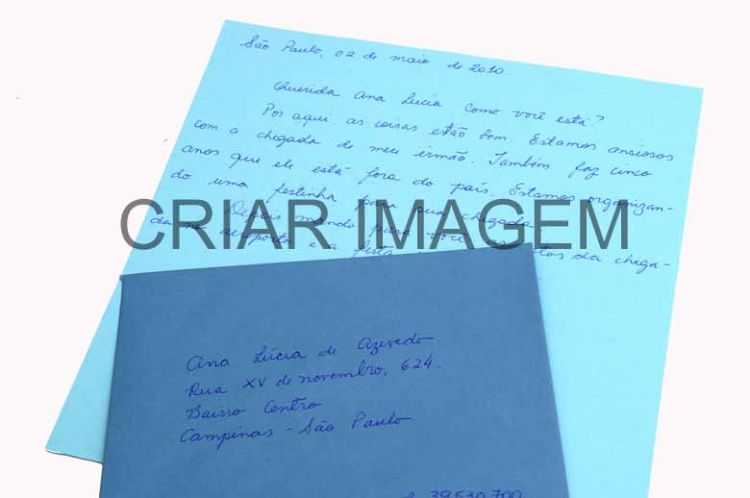 São Paulo, 02 de maio de 2010.
Querida Ana Lúcia como você está?
Por aqui as coisas estão bem. Estamos ansiosos
com a chegada de meu irmão. Também faz cinco
anos que ele está fora do país. Estamos organizan-
do uma festinha para sua chegada.
Depois mando para você fotos da chega-
da no aeroporto e a festa
CRIAR IMAGEM
Ana Lúcia de Azevedo
Rua XV de novembro, 624.
Bairro Centro
Campinas - São Paulo
39530700